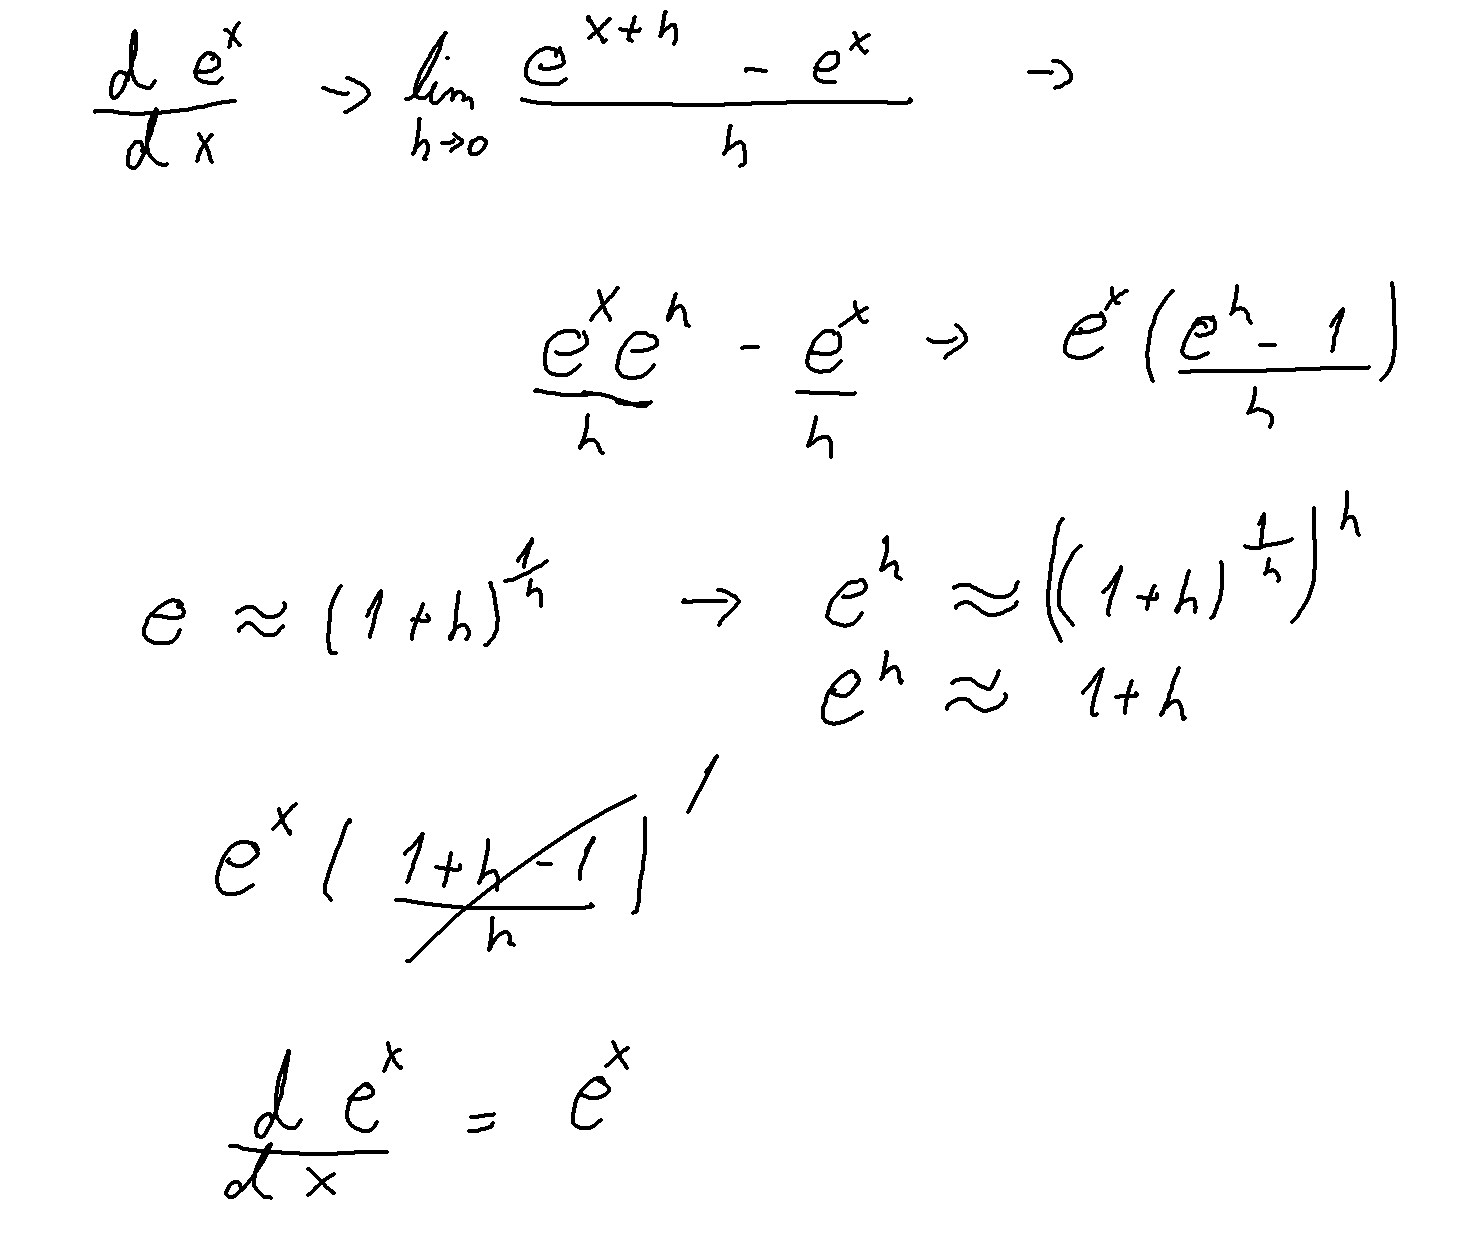 d e^x / d x → lim h→0 (e^(x+h) - e^x) / h →
e^x e^h / h - e^x / h → e^x ( (e^h - 1) / h )
e ≈ (1+h)^(1/h) → e^h ≈ ((1+h)^(1/h))^h
e^h ≈ 1+h
e^x ( (1+h-1) / h ) 1
d e^x / d x = e^x